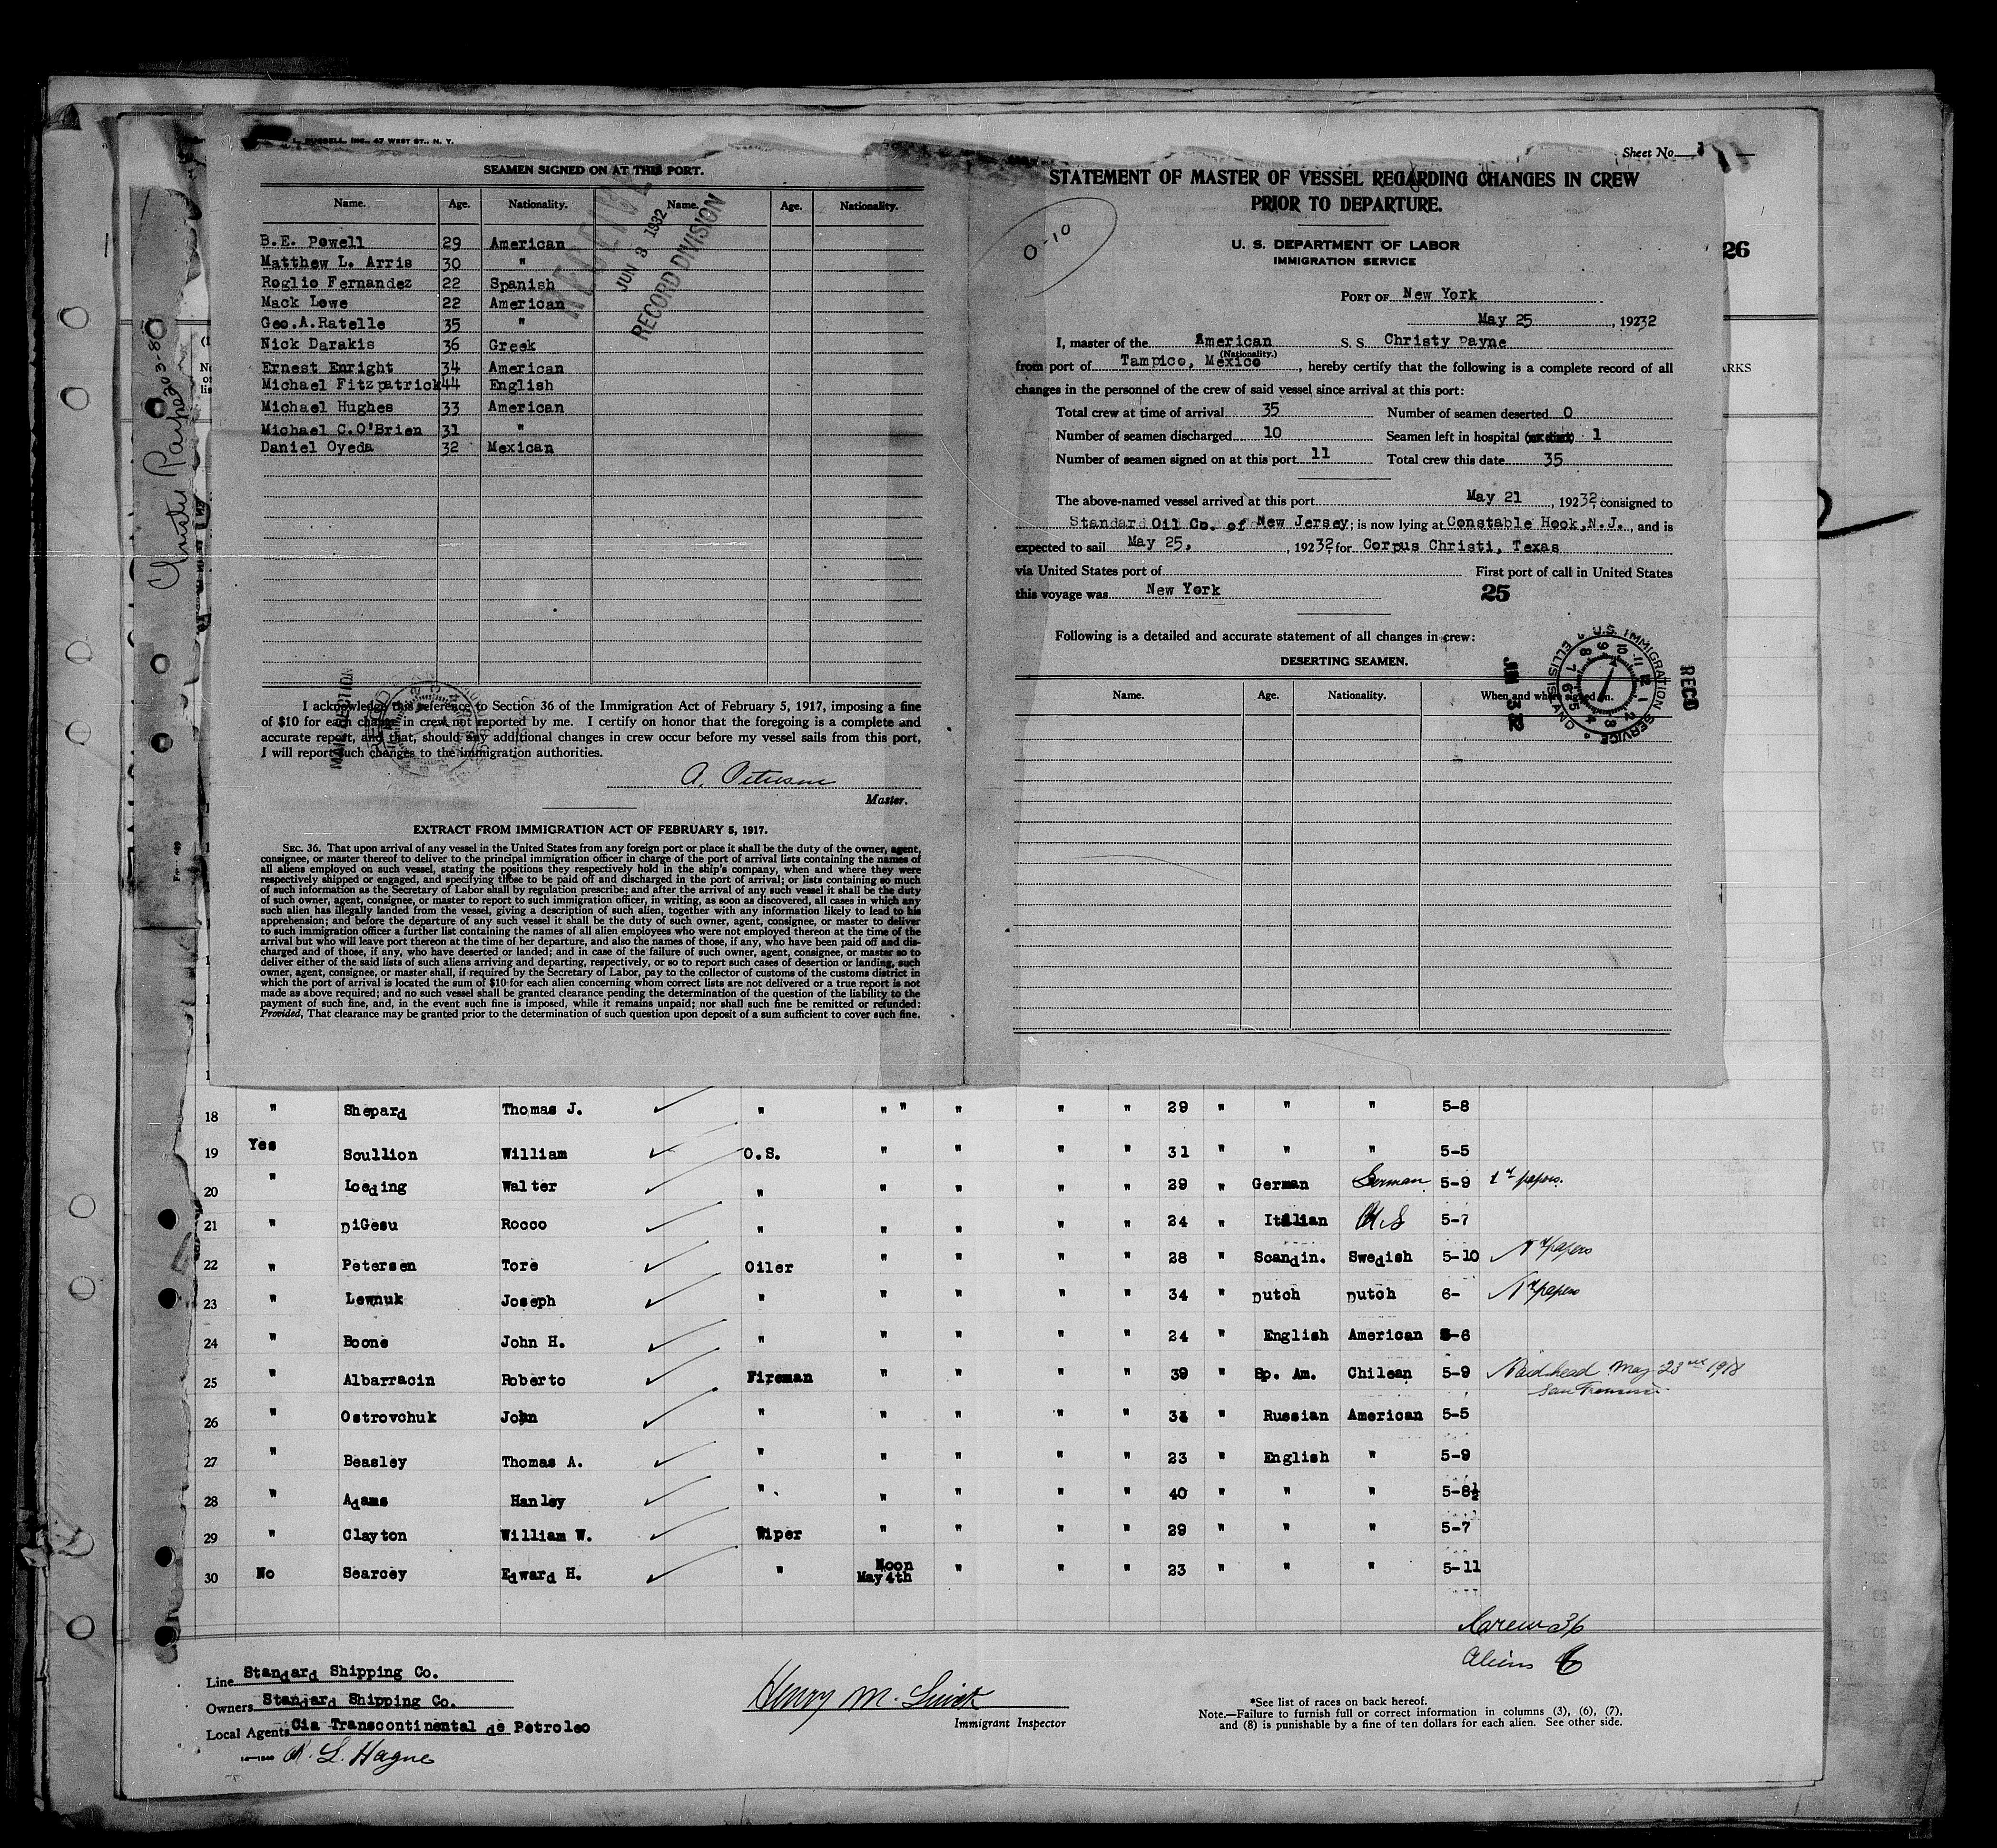 RUSSELL, INC., 47 WEST ST., N. Y.
SEAMEN SIGNED ON AT THIS PORT.
Name. Age. Nationality. Name. Age. Nationality.
B.E. Powell 29 American
Matthew L. Arris 30 "
Roglio Fernandez 22 Spanish
Mack Lowe 22 American
Geo.A.Ratelle 35 "
Nick Darakis 36 Greek
Ernest Enright 34 American
Michael Fitzpatrick 44 English
Michael Hughes 33 American
Michael C.O'Brien 31 "
Daniel Oyeda 32 Mexican
RECEIVED
JUN 3 1932
RECORD DIVISION
I acknowledge this reference to Section 36 of the Immigration Act of February 5, 1917, imposing a fine
of $10 for each change in crew not reported by me. I certify on honor that the foregoing is a complete and
accurate report, and that, should any additional changes in crew occur before my vessel sails from this port,
I will report such changes to the immigration authorities.
MAIL SECTION
A. Petersen
Master.
EXTRACT FROM IMMIGRATION ACT OF FEBRUARY 5, 1917.
SEC. 36. That upon arrival of any vessel in the United States from any foreign port or place it shall be the duty of the owner, agent,
consignee, or master thereof to deliver to the principal immigration officer in charge of the port of arrival lists containing the names of
all aliens employed on such vessel, stating the positions they respectively hold in the ship's company, when and where they were
respectively shipped or engaged, and specifying those to be paid off and discharged in the port of arrival; or lists containing so much
of such information as the Secretary of Labor shall by regulation prescribe; and after the arrival of any such vessel it shall be the duty
of such owner, agent, consignee, or master to report to such immigration officer, in writing, as soon as discovered, all cases in which any
such alien has illegally landed from the vessel, giving a description of such alien, together with any information likely to lead to his
apprehension; and before the departure of any such vessel it shall be the duty of such owner, agent, consignee, or master to deliver
to such immigration officer a further list containing the names of all alien employees who were not employed thereon at the time of the
arrival but who will leave port thereon at the time of her departure, and also the names of those, if any, who have been paid off and dis-
charged and of those, if any, who have deserted or landed; and in case of the failure of such owner, agent, consignee, or master so to
deliver either of the said lists of such aliens arriving and departing, respectively, or so to report such cases of desertion or landing, such
owner, agent, consignee, or master shall, if required by the Secretary of Labor, pay to the collector of customs of the customs district in
which the port of arrival is located the sum of $10 for each alien concerning whom correct lists are not delivered or a true report is not
made as above required; and no such vessel shall be granted clearance pending the determination of the question of the liability to the
payment of such fine, and, in the event such fine is imposed, while it remains unpaid; nor shall such fine be remitted or refunded:
Provided, That clearance may be granted prior to the determination of such question upon deposit of a sum sufficient to cover such fine.
Sheet No.
STATEMENT OF MASTER OF VESSEL REGARDING CHANGES IN CREW
PRIOR TO DEPARTURE.
0-10
U. S. DEPARTMENT OF LABOR
IMMIGRATION SERVICE
26
PORT OF New York
May 25, 19232
I, master of the American S. S. Christy Payne
(Nationality.)
from port of Tampico, Mexico, hereby certify that the following is a complete record of all
changes in the personnel of the crew of said vessel since arrival at this port:
Total crew at time of arrival 35 Number of seamen deserted 0
Number of seamen discharged 10 Seamen left in hospital 1
Number of seamen signed on at this port 11 Total crew this date 35
The above-named vessel arrived at this port May 21, 19232, consigned to
Standard Oil Co. of New Jersey; is now lying at Constable Hook, N.J., and is
expected to sail May 25, , 19232, for Corpus Christi, Texas
via United States port of First port of call in United States
this voyage was New York
25
Following is a detailed and accurate statement of all changes in crew:
DESERTING SEAMEN.
Name. Age. Nationality. When and where signed on.
RECD
JUN 3 32
U.S. IMMIGRATION SERVICE ELLIS ISLAND
18 " Shepard Thomas J. " " " " " " 29 " " " 5-8
19 Yes Scullion William O.S. " " " " 31 " " " 5-5
20 " Loeding Walter " " " " " 29 " German German 5-9 1st papers.
21 " DiGesu Rocco " " " " " 24 " Italian U.S 5-7
22 " Petersen Tore Oiler " " " " 28 " Scandin. Swedish 5-10 papers
23 " Lewnuk Joseph " " " " " 34 " Dutch Dutch 6- papers
24 " Boone John H. " " " " " 24 " English American 5-6
25 " Albarracin Roberto Fireman " " " " 39 " Sp. Am. Chilean 5-9 May 23 1918
26 " Ostrovchuk John " " " " " 34 " Russian American 5-5
27 " Beasley Thomas A. " " " " " 23 " English " 5-9
28 " Adams Hanley " " " " " 40 " " " 5-8½
29 " Clayton William W. Wiper " " " " 29 " " " 5-7
30 No Searcey Edward H. " Noon May 4th " " " 23 " " " 5-11
Crew 36
Aliens 6
Line Standard Shipping Co.
Owners Standard Shipping Co.
Local Agents Cia Transcontinental de Petroleo
R. L. Hague
Henry M.
Immigrant Inspector
*See list of races on back hereof.
Note.—Failure to furnish full or correct information in columns (3), (6), (7),
and (8) is punishable by a fine of ten dollars for each alien. See other side.